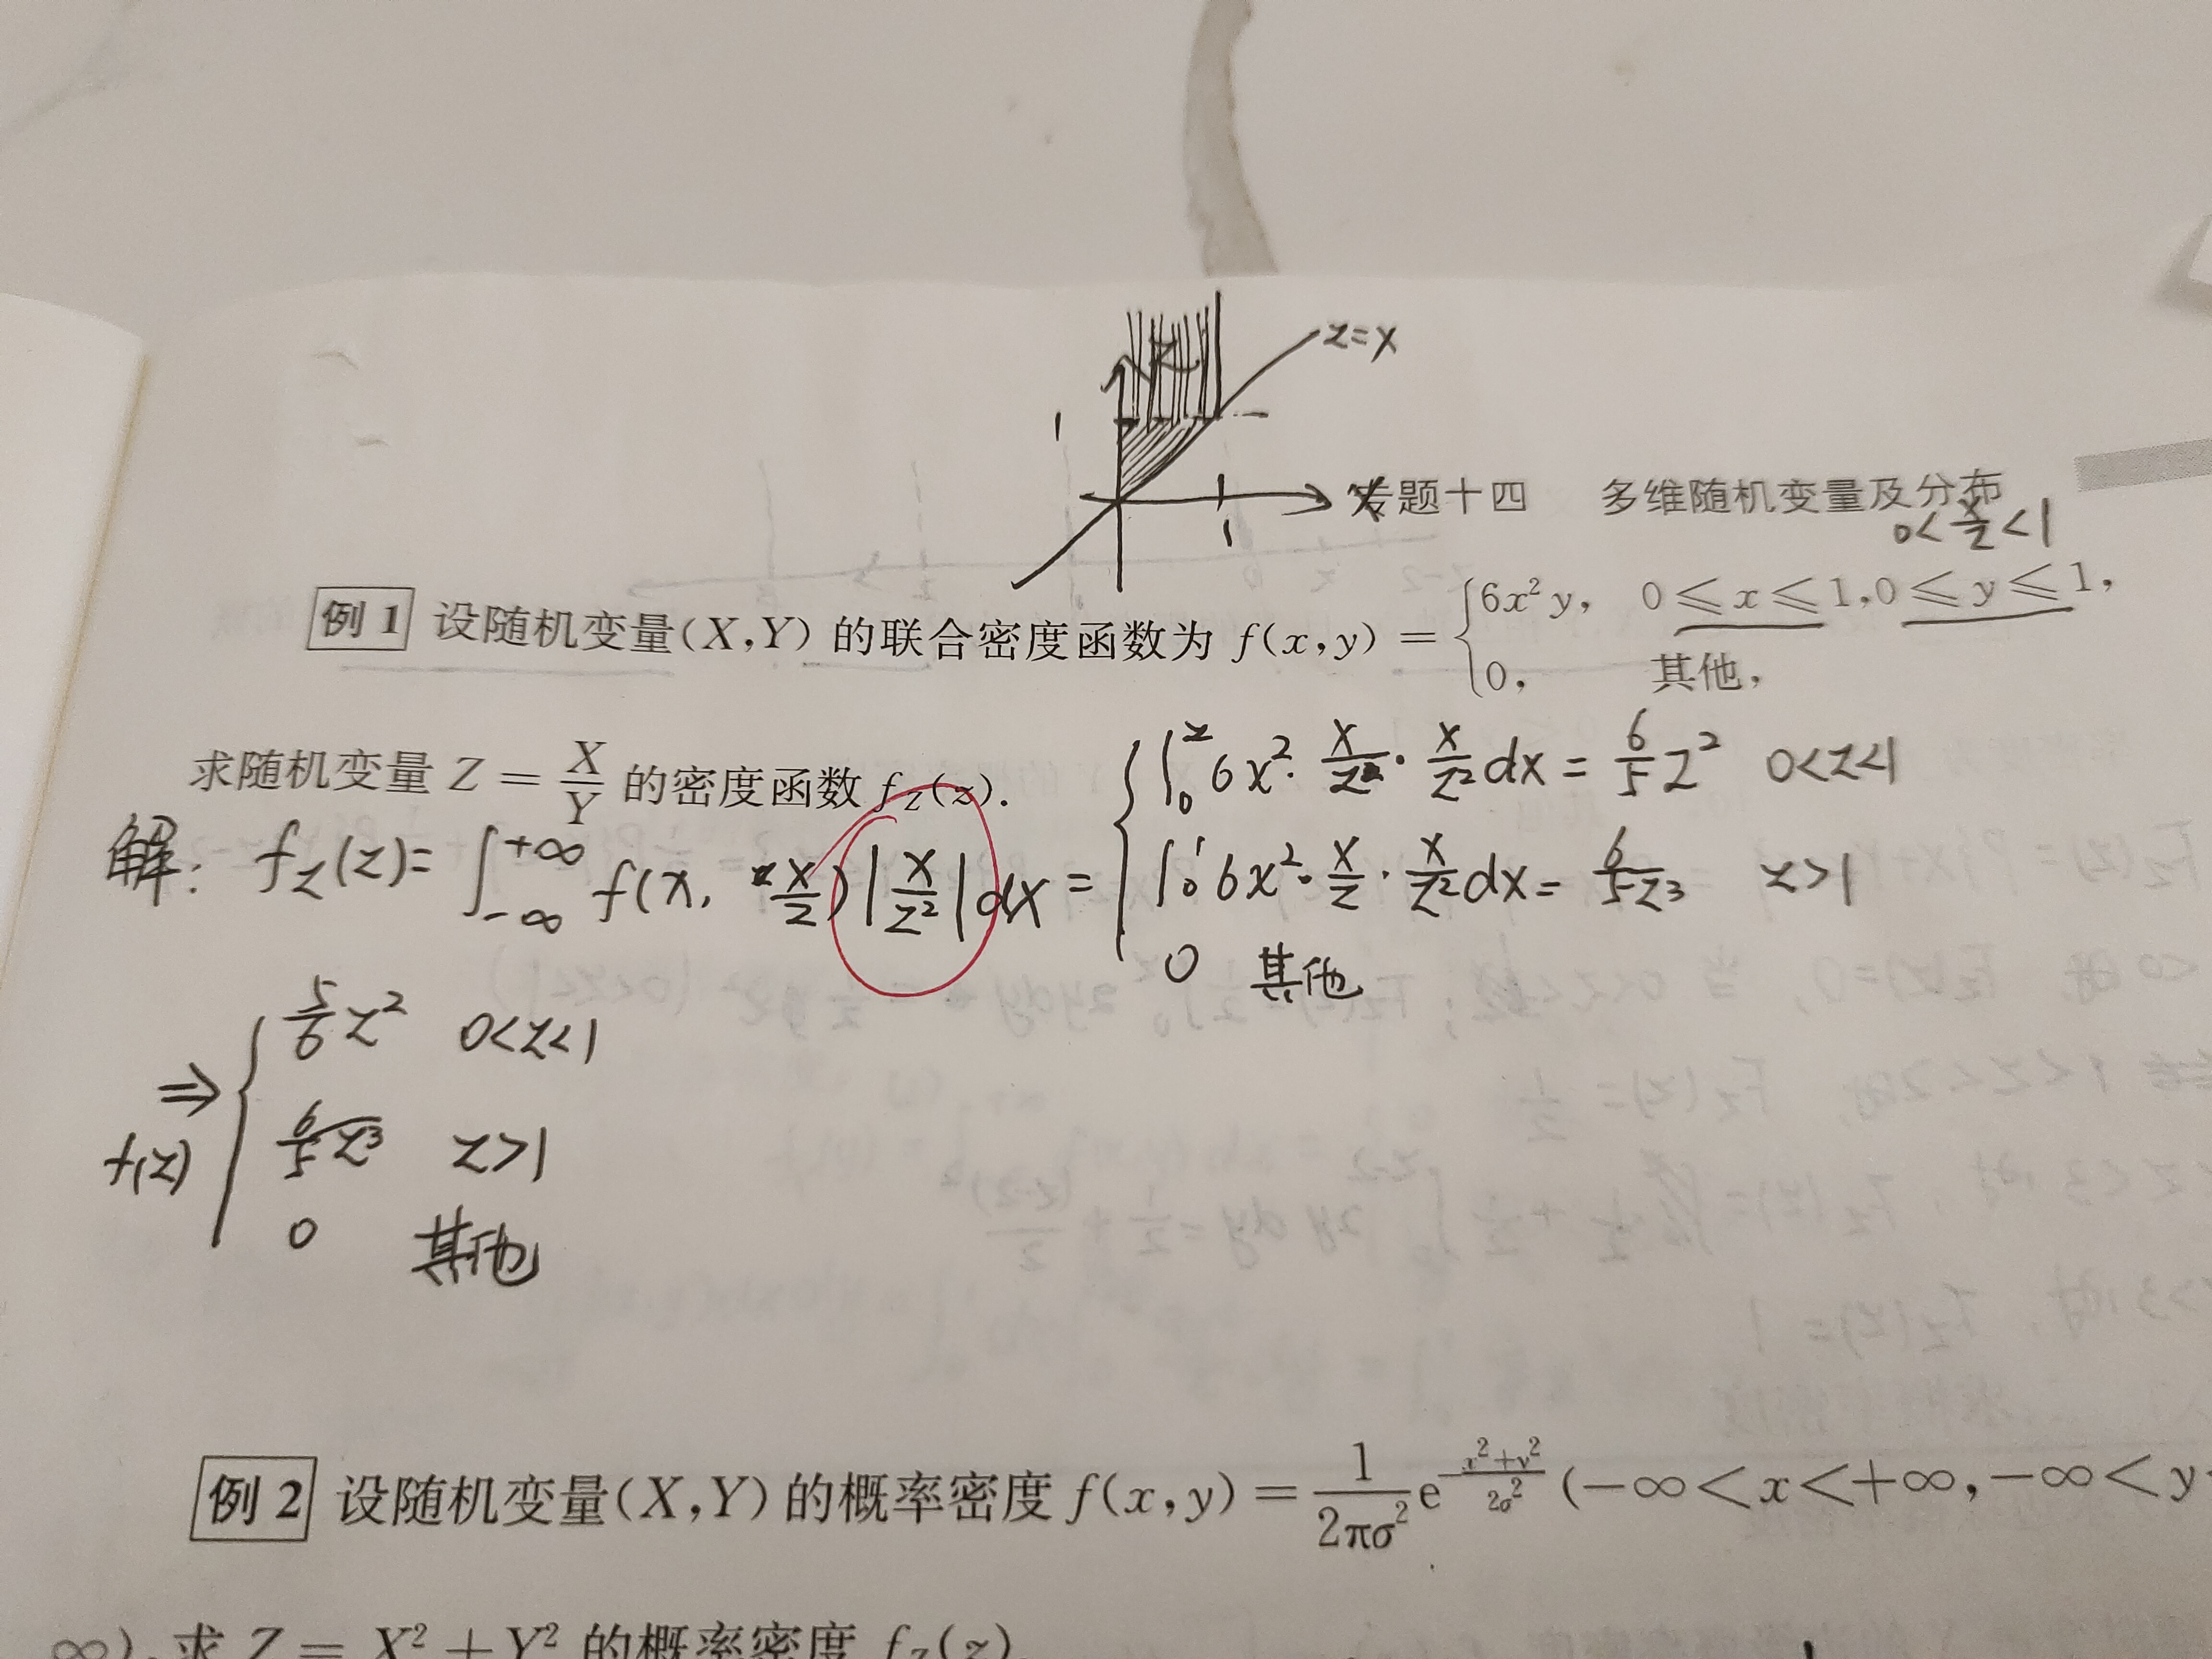 z=x
1
z
x
1
专题十四 多维随机变量及分布
0<x/z<1
例1 设随机变量(X,Y)的联合密度函数为 f(x,y) = { 6x²y, 0⩽x⩽1,0⩽y⩽1,
0, 其他,
求随机变量 Z = X/Y 的密度函数 f_Z(z).
解: f_Z(z)= ∫_{-∞}^{+∞} f(x, x/z)|x/z²|dx = { ∫_0^z 6x²·x/z·x/z² dx = 6/5 z² 0<z<1
∫_0^1 6x²·x/z·x/z² dx = 6/(5z³) z>1
0 其他
⇒ f(z) { 5/6 z² 0<z<1
6/(5z³) z>1
0 其他
例2 设随机变量(X,Y)的概率密度 f(x,y) = 1/(2πσ²) e^{-(x²+y²)/(2σ²)} (−∞<x<+∞,−∞<y<
∞),求 Z = X²+Y² 的概率密度 f_Z(z).